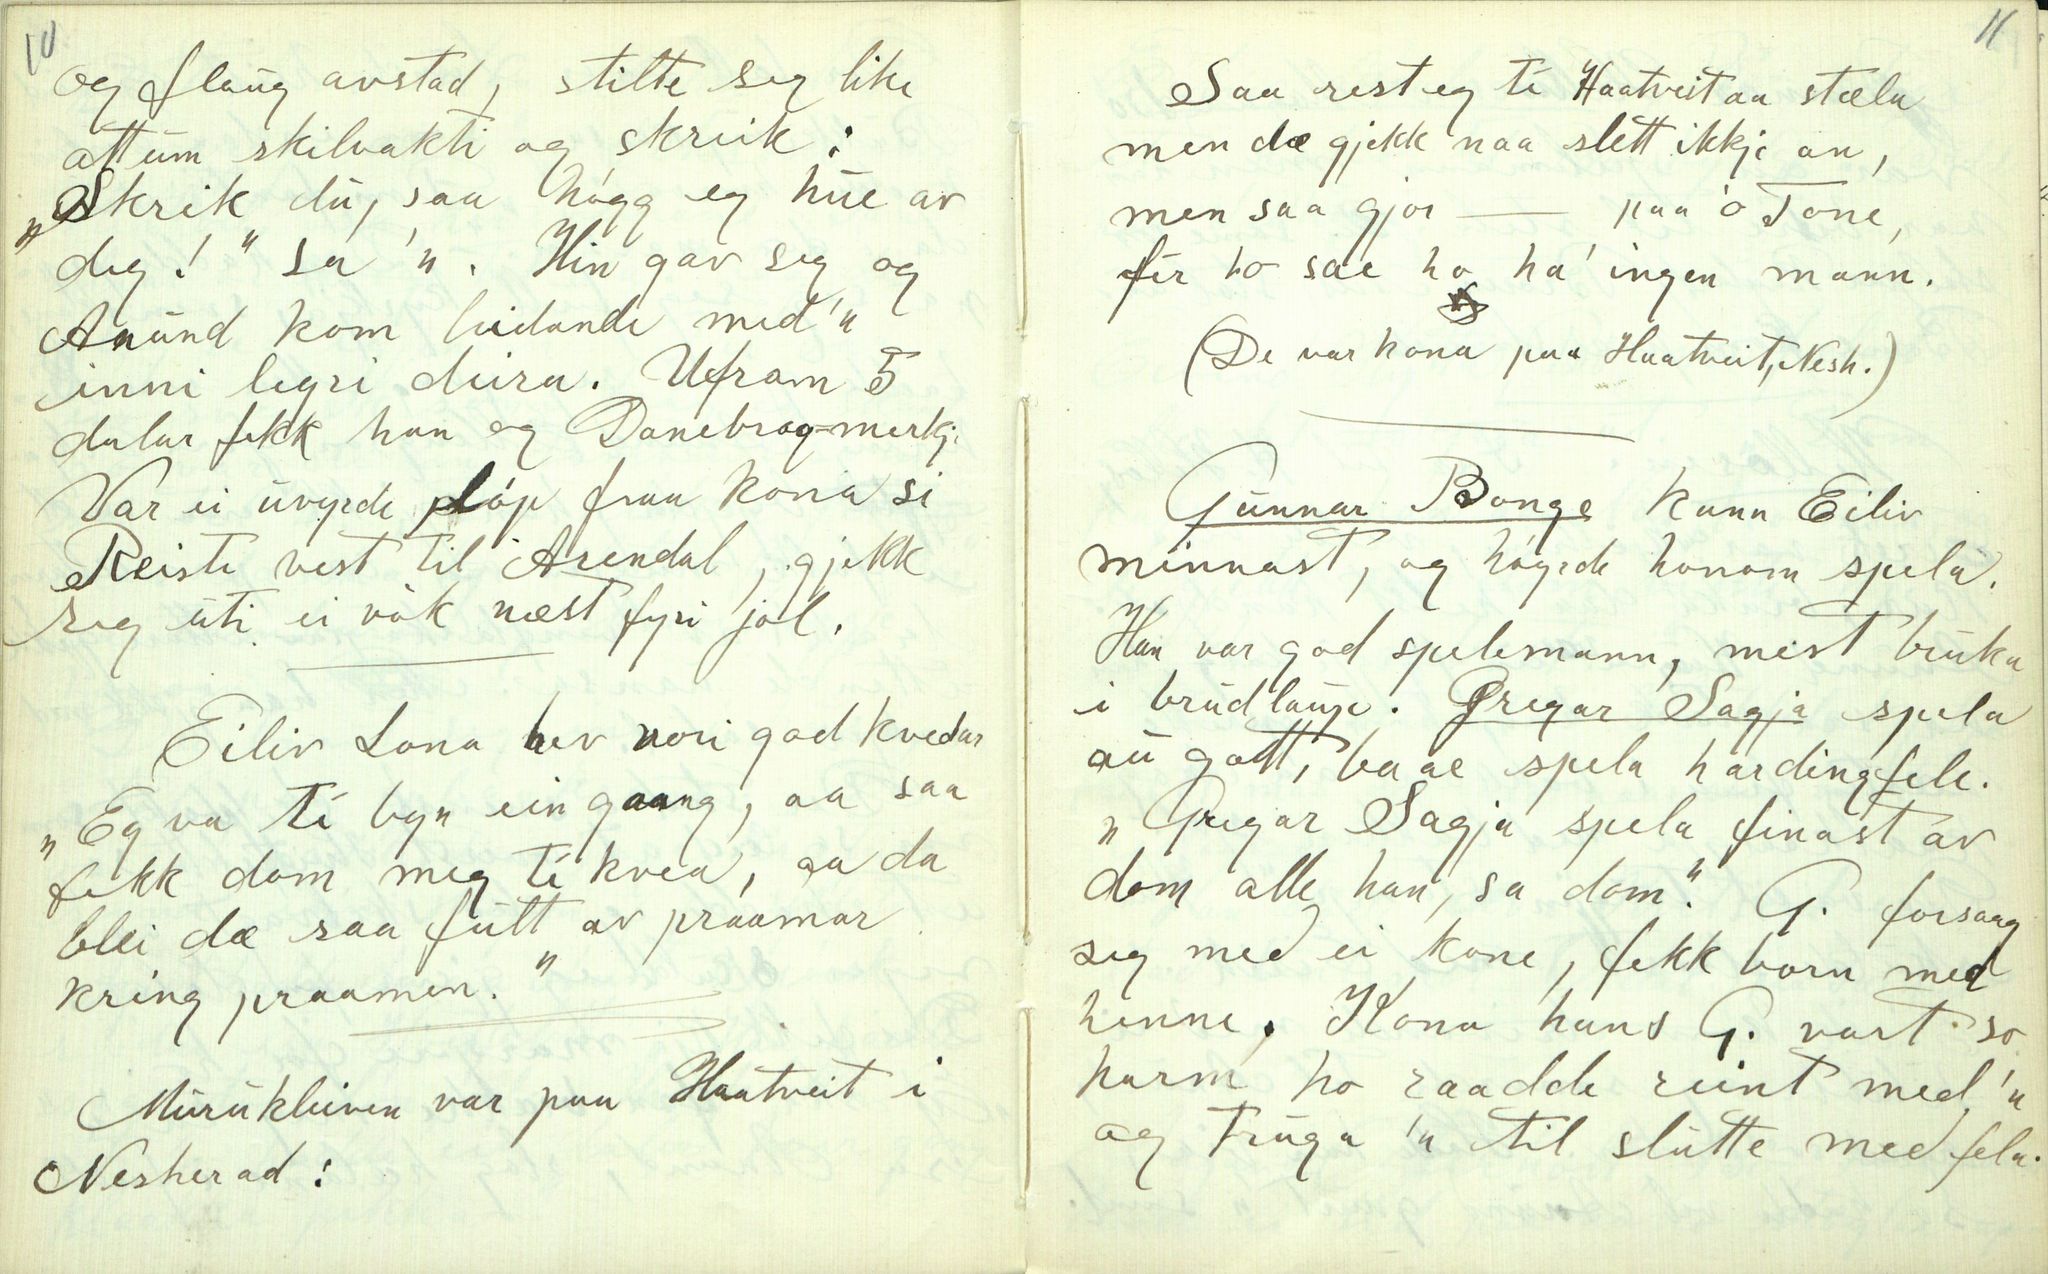 10
og flaug avstad, stilte seg like
attum skilvakti og skreik:
„Skrik du, saa høgg eg hue av
deg!" sa 'n. Hin gav seg og
Anund kom leidande med 'n
inni legri deira. Ufram 5
dalar fekk han og Danebrog-merkje.
Var ei uvyrde, løp fraa kona si
Reiste vest til Arendal, gjekk
seg uti ei vok næst fyri jol.
Eiliv Lona hev vori god kvedar
„Eg va te byn ein gaang, aa saa
fekk dom meg te kvea, aa da
blei dæ saa fullt av praamar
kring praamen."
Murukleiven var paa Haatveit i
Nesherad:
11
Saa rest eg te Haatveit aa stæla
men dæ gjekk naa slett ikkje an,
men saa gjor — paa 'o Tone,
fer ho sae ho ha' ingen mann.
(De var kona paa Haatveit, Nesh.)
Gunnar Bonge kann Eiliv
minnast, og høyrde honom spela.
Han var god spelemann, mest bruka
i brudlaupe. Gregar Sagja spela
au gott, baae spela hardingfele.
„Gregar Sagja spela finast av
dom alle han, sa dom." G. forsaag
seg med ei kone, fekk born med
henne. Kona hans G. vart so
harm, ho raadde reint med 'n
og truga 'n til slutte med fela.